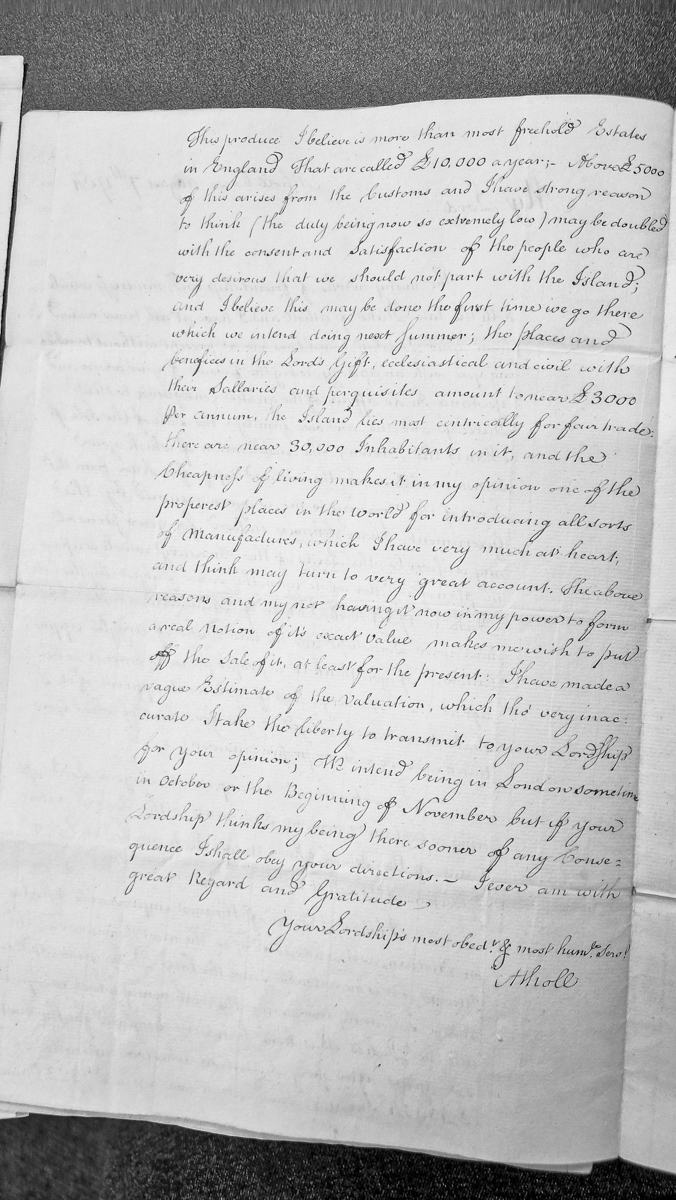 This produce I believe is more than most freehold Estates
in England That are called £10,000 a year;- Above £5000
of this arises from the Customs and I have strong reason
to think (the duty being now so extremely low) may be doubled
with the consent and Satisfaction of the people who are
very desirous that we should not part with the Island;
and I believe this may be done the first time we go there
which we intend doing next Summer; the places and
benefices in the Lords Gift, ecclesiastical and civil with
their Sallaries and perquisites amount to near £3000
per annum, the Island lies most centrically for fair trade:
there are near 30,000 Inhabitants in it, and the
Cheapness of living makes it in my opinion one of the
properest places in the World for introducing all sorts
of Manufactures, which I have very much at heart,
and think may turn to very great account. The above
reasons and my not having it now in my power to form
a real Notion of its exact value makes me wish to put
off the Sale of it, at least for the present: I have made a
vague Estimate of the Valuation, which tho' very inac=
curate I take the liberty to transmit to your Lordship
for your opinion; We intend being in London sometime
in October or the Beginning of November but if your
Lordship thinks my being there sooner of any Conse=
quence I shall obey your directions.- I ever am with
great Regard and Gratitude
Your Lordship's most obed.t & most hum.le Serv.t
Atholl